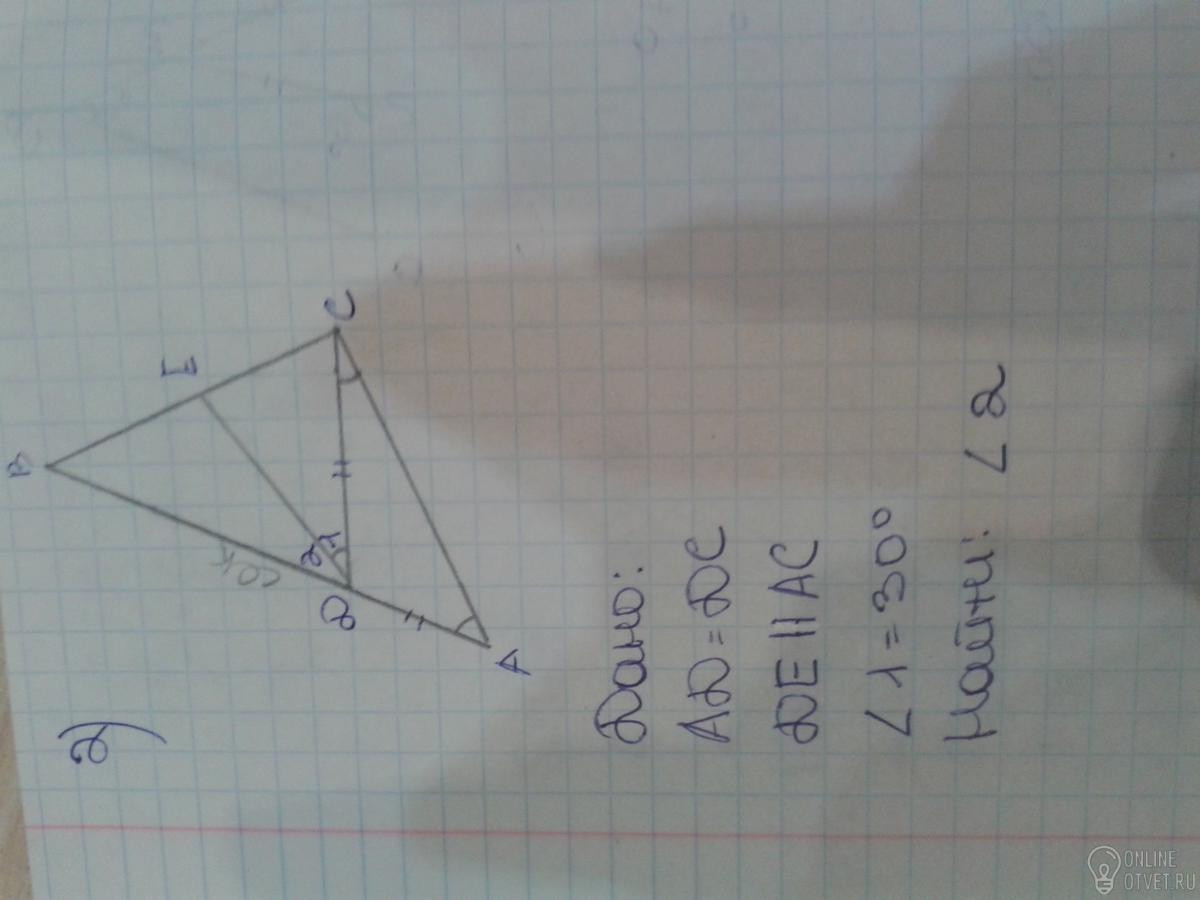 2)
B
E
C
D
A
2
1
Дано:
AD = DC
DE || AC
∠1 = 30°
Найти: ∠2
ONLINE
OTVET.RU